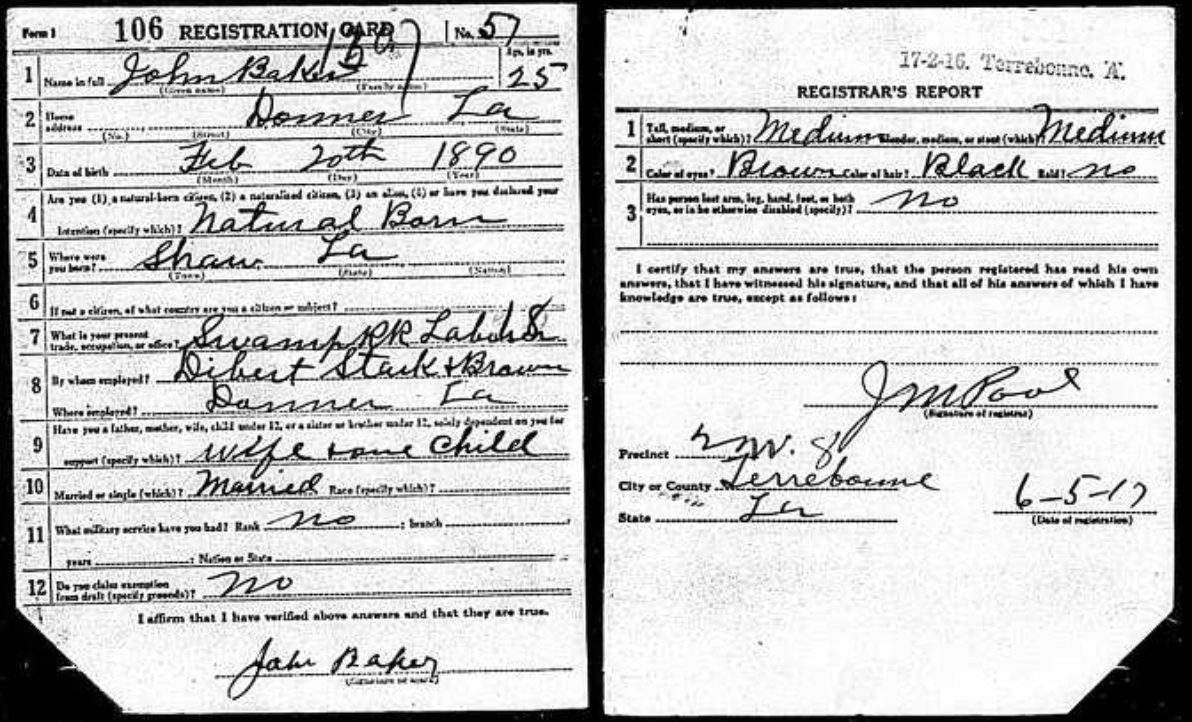 Form 1 106 REGISTRATION CARD No. 57
1 Name in full John Baker Age, in yrs. 25
(Given name) (Family name)
2 Home address Donner La
(No.) (Street) (City) (State)
3 Date of birth Feb 20th 1890
(Month) (Day) (Year)
4 Are you (1) a natural-born citizen, (2) a naturalized citizen, (3) an alien, (4) or have you declared your
intention (specify which)? Natural Born
5 Where were you born? Shaw La
(Town) (State) (Nation)
6 If not a citizen, of what country are you a citizen or subject?
7 What is your present trade, occupation, or office? Swamp RR Laborer
8 By whom employed? Dibert Stark & Brown
Where employed? Donner La
9 Have you a father, mother, wife, child under 12, or a sister or brother under 12, solely dependent on you for
support (specify which)? wife & one child
10 Married or single (which)? Married Race (specify which)?
11 What military service have you had? Rank no ; branch
years ; Nation or State
12 Do you claim exemption from draft (specify grounds)? No
I affirm that I have verified above answers and that they are true.
John Baker
17-2-16. Terrebonne, A.
REGISTRAR'S REPORT
1 Tall, medium, or short (specify which)? Medium Slender, medium, or stout (which)? Medium
2 Color of eyes? Brown Color of hair? Black Bald? no
3 Has person lost arm, leg, hand, foot, or both eyes, or is he otherwise disabled (specify)? No
I certify that my answers are true, that the person registered has read his own
answers, that I have witnessed his signature, and that all of his answers of which I have
knowledge are true, except as follows:
J M Pool
(Signature of registrar)
Precinct 8
City or County Terrebonne
State La
6-5-17
(Date of registration)